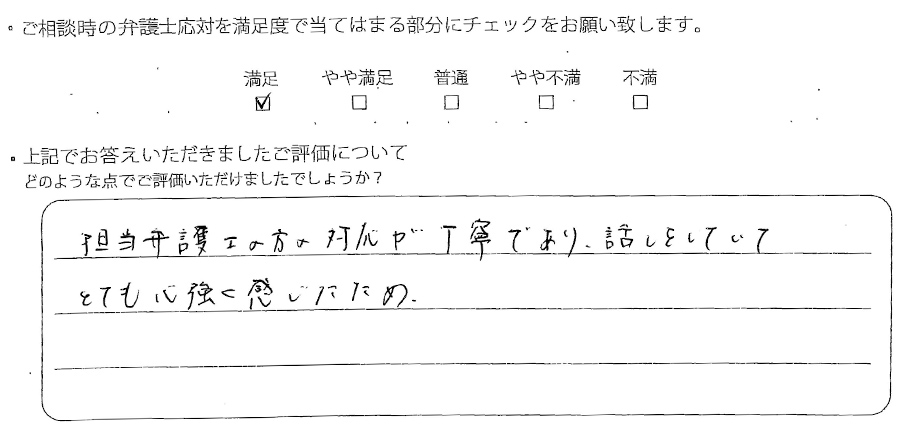 ・ご相談時の弁護士応対を満足度で当てはまる部分にチェックをお願い致します。
満足 やや満足 普通 やや不満 不満
☑ □ □ □ □
・上記でお答えいただきましたご評価について
どのような点でご評価いただけましたでしょうか？
担当弁護士の方の対応が丁寧であり、話しをしていて
とても心強く感じたため.